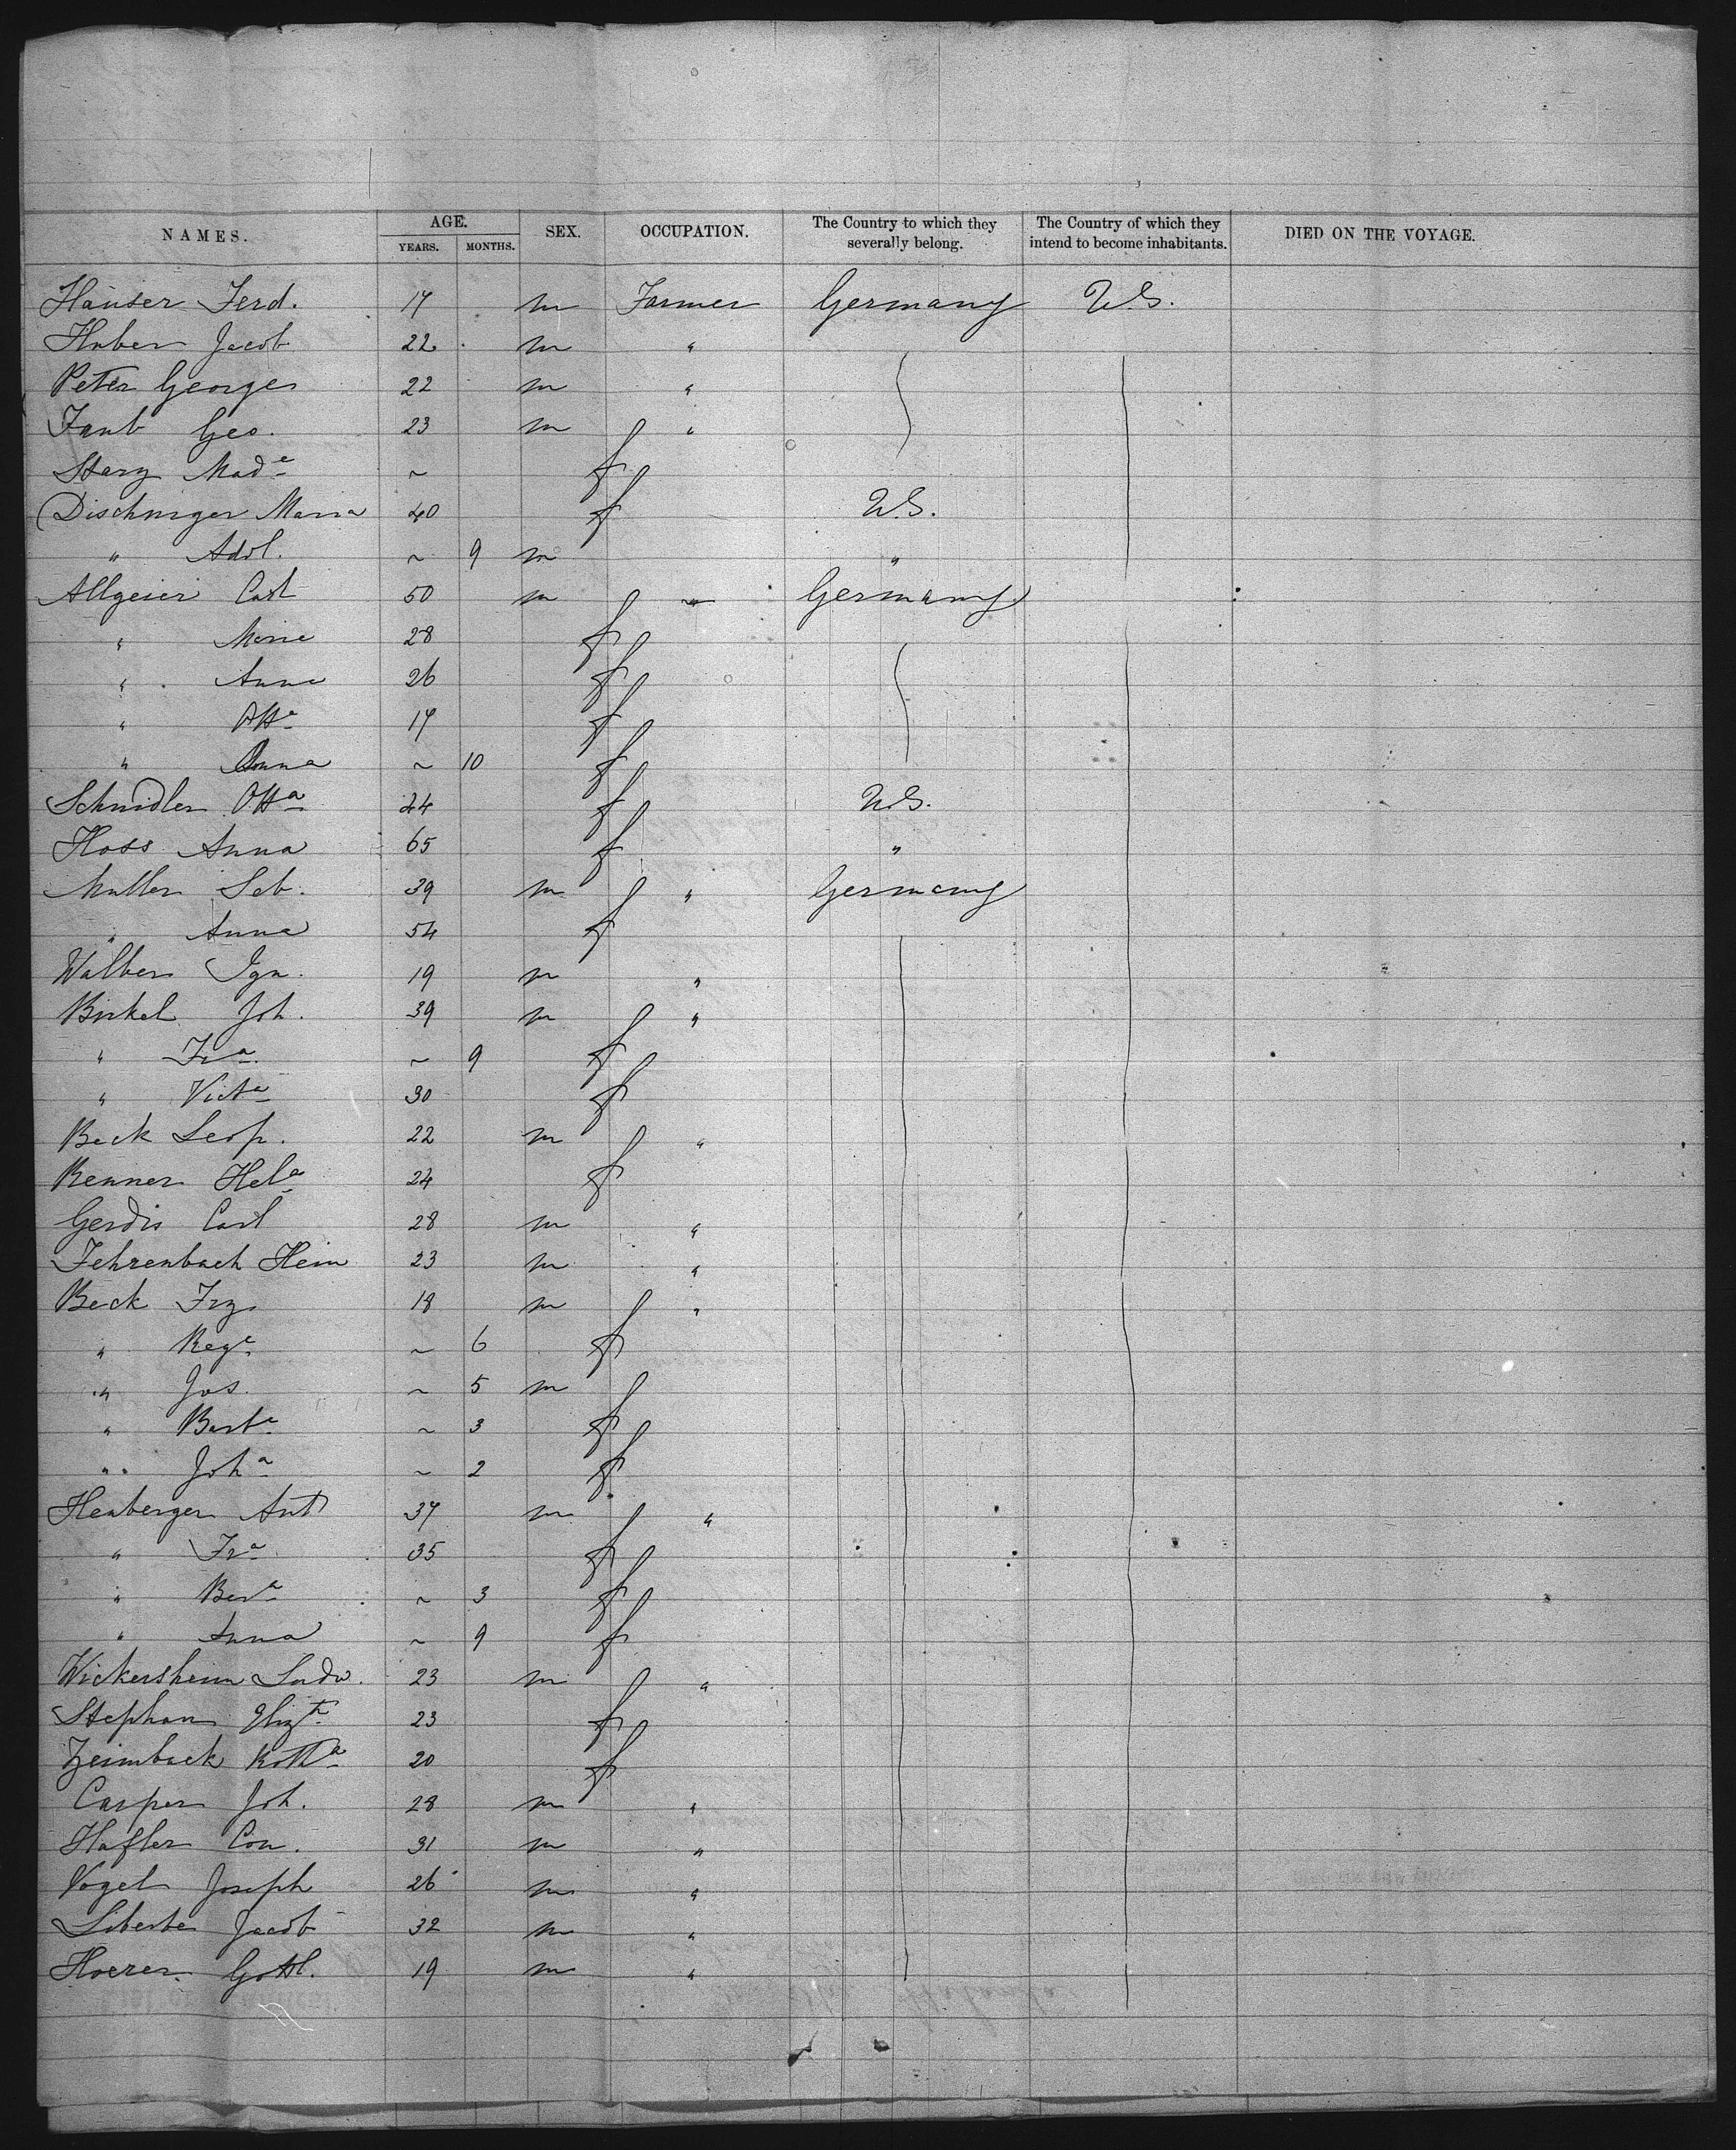 NAMES. AGE. SEX. OCCUPATION. The Country to which they severally belong. The Country of which they intend to become inhabitants. DIED ON THE VOYAGE.
YEARS. MONTHS.
Hauser Ferd. 17 m Farmer Germany U.S.
Huber Jacob 22 m "
Peter George 22 m "
Faub Geo. 23 m "
Starz Mad^e ~ f
Dischinger Maria 40 f U.S.
" Adol. ~ 9 m "
Allgeier Carl 50 m " Germany
" Marie 28 f
" Anna 26 f
" Ott^a 17 f
" Anna ~ 10 f
Schmidler Ott^a 24 f U.S.
Hoss Anna 65 f "
Muller Seb. 39 m " Germany
" Anna 54 f
Walber Ign. 19 m "
Birkel Joh. 39 m "
" Fr^a ~ 9 f
" Vict^a 30 f
Beck Leop. 22 m "
Renner Hel^a 24 f
Gerdis Carl 28 m "
Fehrenbach Hein 23 m "
Beck Frz. 18 m "
" Reg^a ~ 6 f
" Jos. ~ 5 m
" Barb^a ~ 3 f
" Joh^a ~ 2 f
Henberger Ant 37 m "
" Fr^a 35 f
" Ber^a ~ 3 f
" Anna ~ 9 f
Wickersheim Ludw. 23 m "
Stephan Eliz^th 23 f
Zeimback Kath^a 20 f
Casper Joh. 28 m "
Hafler Con. 31 m "
Vogel Joseph 26 m "
Liberte Jacob 32 m "
Hoerer Gottl. 19 m "